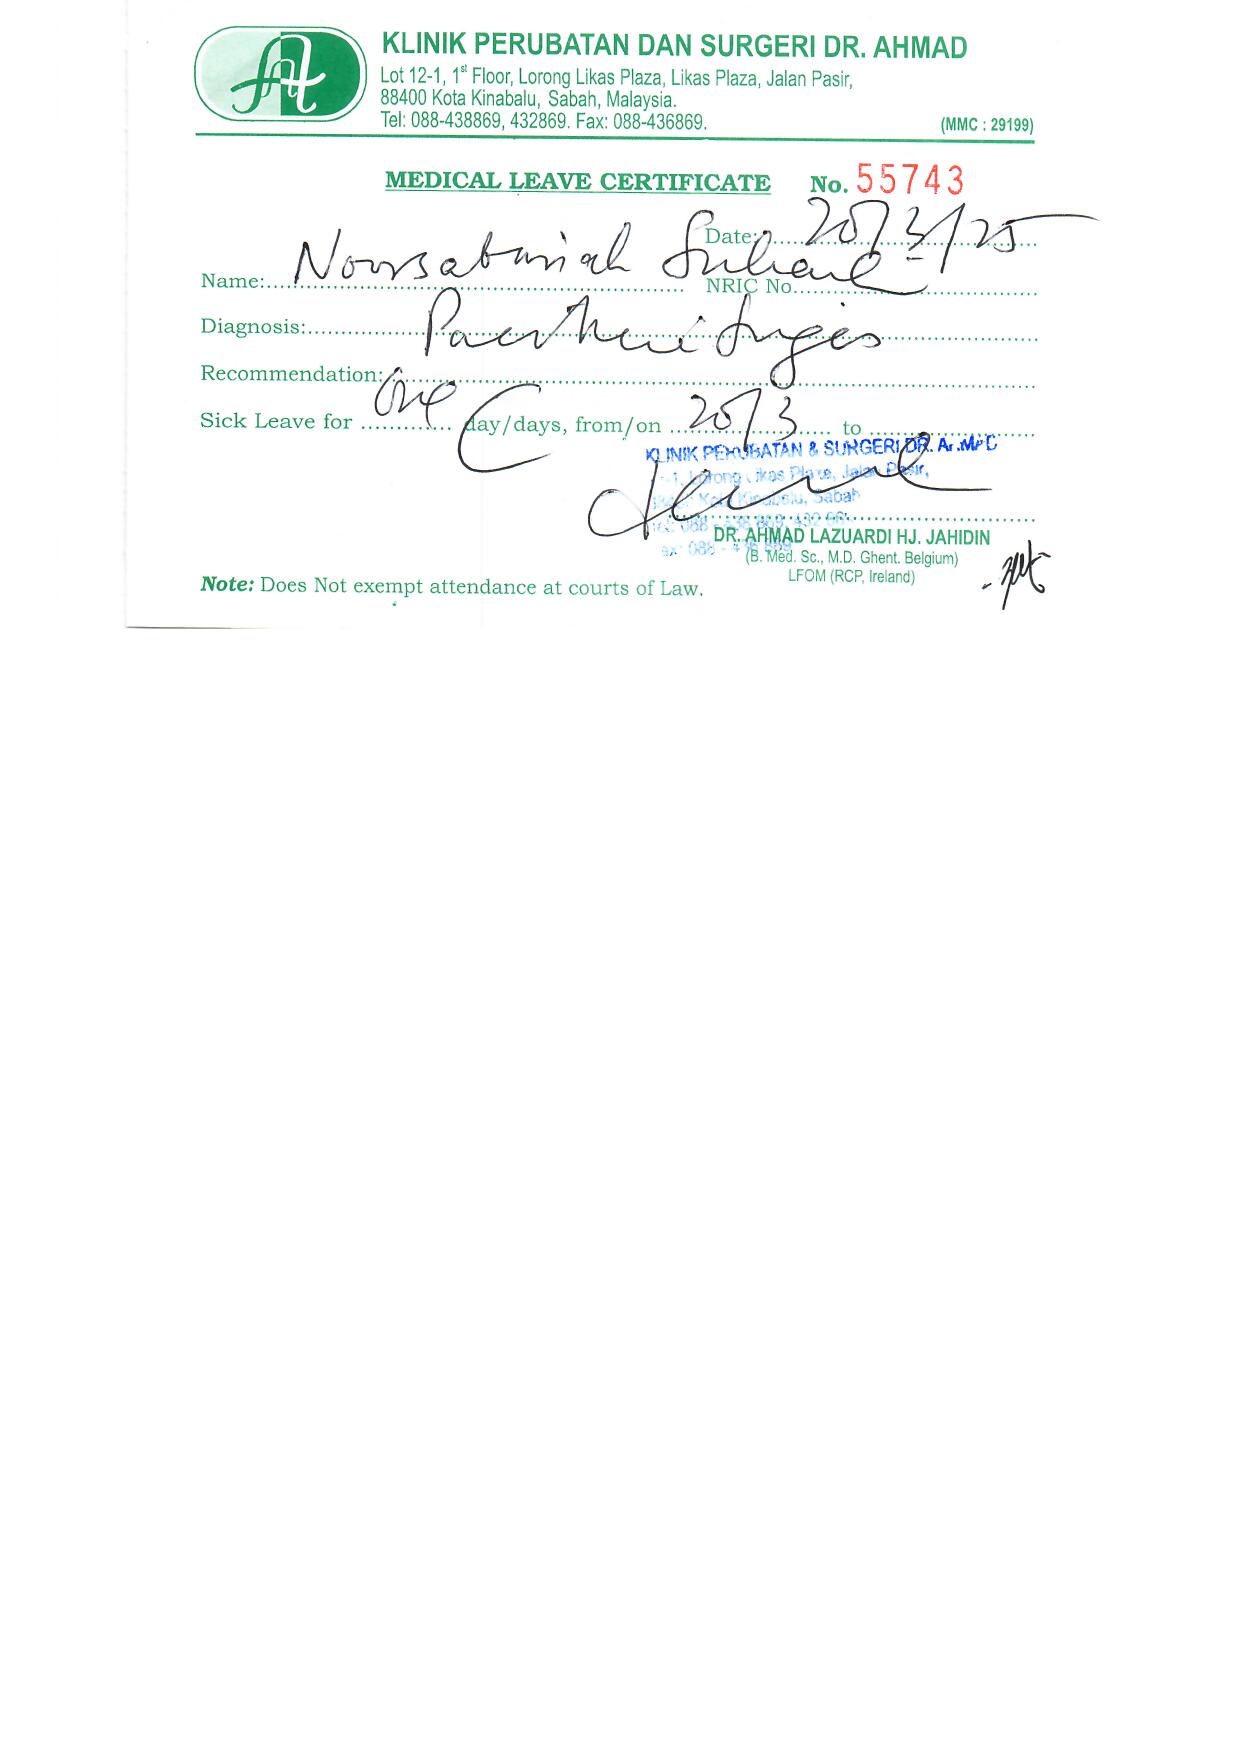 KLINIK PERUBATAN DAN SURGERI DR. AHMAD
Lot 12-1, 1st Floor, Lorong Likas Plaza, Likas Plaza, Jalan Pasir,
88400 Kota Kinabalu, Sabah, Malaysia.
Tel: 088-438869, 432869. Fax: 088-436869.
(MMC : 29199)
MEDICAL LEAVE CERTIFICATE No. 55743
Date: 20/3/25
Name: NRIC No.
Diagnosis:
Recommendation:
Sick Leave for One day/days, from/on 20/3 to
KLINIK PERUBATAN & SURGERI DR.
Lorong Likas Plaza, Jalan Pasir,
Kota Kinabalu, Sabah
DR. AHMAD LAZUARDI HJ. JAHIDIN
(B. Med. Sc., M.D. Ghent. Belgium)
LFOM (RCP, Ireland)
Note: Does Not exempt attendance at courts of Law.